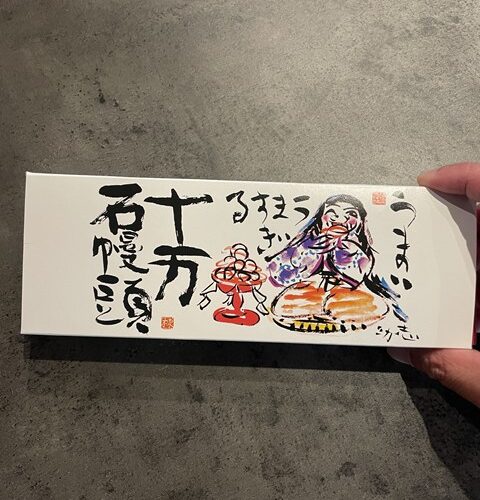 うまい
うま
すぎ
る
十万
石饅頭
志功